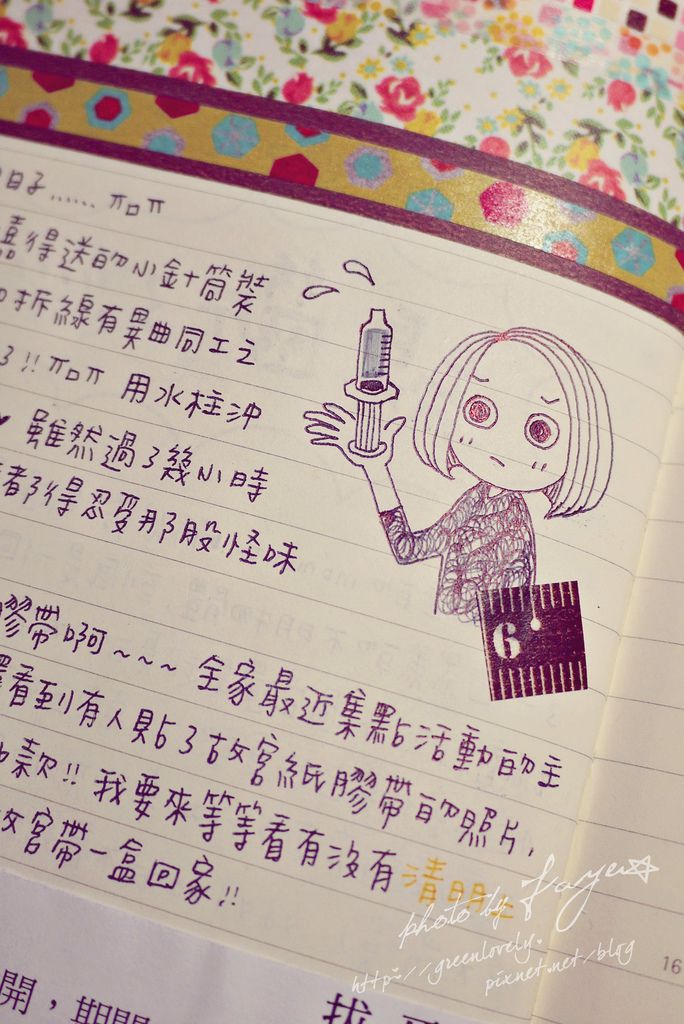 日子...... ㄇㅁㄇ
得送的小針筒裝
拆線有異曲同工之
了!! ㄇㅁㄇ 用水柱沖
雖然過了幾小時
都得忍受那股怪味
膠帶啊~~~ 全家最近集點活動的主
看到有人貼了故宮紙膠帶的照片,
款!! 我要來等等看有沒有清明上
故宮帶一盒回家!!
6
photo by faye
http://greenlovely.
pixnet.net/blog
16
開，期間